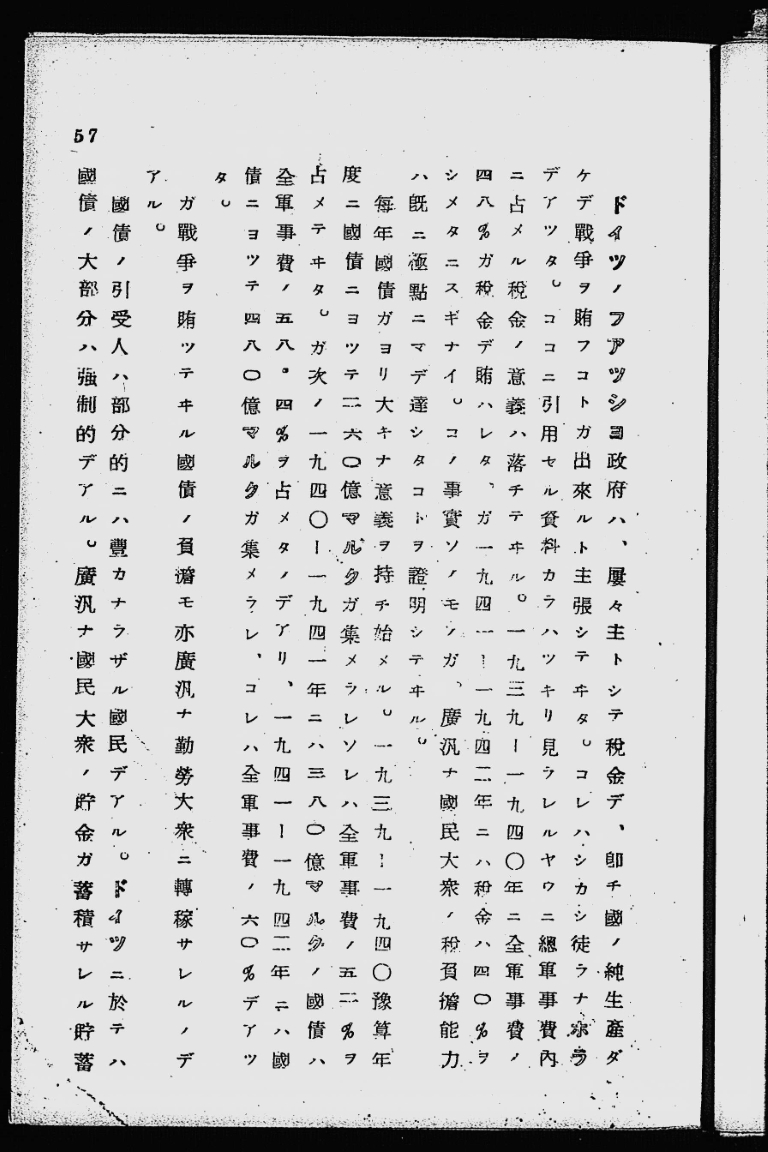 ドイツノフアツシヨ政府ハ、屢々主トシテ税金デ、卽チ國ノ純生產ダ
ケデ戰爭ヲ賄フコトガ出來ルト主張シテヰタ。コレハシカシ徒ラナホラ
デアツタ。ココニ引用セル資料カラハツキリ見ラレルヤウニ總軍事費內
ニ占メル税金ノ意義ハ落チテヰル。一九三九ー一九四〇年ニ全軍事費ノ
四八%ガ税金デ賄ハレタ、ガ一九四一ー一九四二年ニハ税金ハ四〇%ヲ
シメタニスギナイ。コノ事實ソノモノガ、廣汎ナ國民大衆ノ税負擔能力
ハ旣ニ極點ニマデ達シタコトヲ證明シテヰル。
每年國債ガヨリ大キナ意義ヲ持チ始メル。一九三九ー一九四〇豫算年
度ニ國債ニヨツテ二六〇億マルクガ集メラレソレハ全軍事費ノ五二%ヲ
占メテヰタ。ガ次ノ一九四〇ー一九四一年ニハ三八〇億マルクノ國債ハ
全軍事費ノ五八。四%ヲ占メタノデアリ、一九四一ー一九四二年ニハ國
債ニヨツテ四八〇億マルクガ集メラレ、コレハ全軍事費ノ六〇%デアツ
タ。
ガ戰爭ヲ賄ツテヰル國債ノ負擔モ亦廣汎ナ勤勞大衆ニ轉稼サレルノデ
アル。
國債ノ引受人ハ部分的ニハ豐カナラザル國民デアル。ドイツニ於テハ
國債ノ大部分ハ强制的デアル。廣汎ナ國民大衆ノ貯金ガ蓄積サレル貯蓄
57